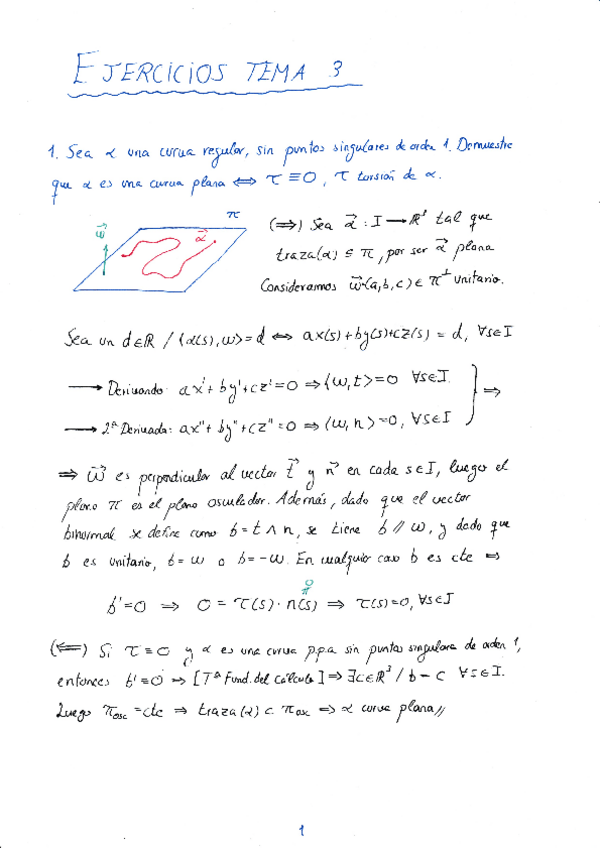 EJERCICIOS TEMA 3
1. Sea α una curva regular, sin puntos singulares de orden 1. Demuestre
que α es una curva plana ⟺ τ ≡ 0, τ torsión de α.
π
w⃗
α⃗
(⟹) Sea α⃗ : I → ℝ³ tal que
traza(α) ⊆ π, por ser α⃗ plana
Consideramos w⃗(a,b,c) ∈ π^⊥ unitario.
Sea un d∈ℝ / ⟨α(s),w⟩ = d ⟺ ax(s)+by(s)+cz(s) = d, ∀s∈I
→ Derivando: ax'+by'+cz'=0 ⟹ ⟨w,t⟩=0 ∀s∈I.
→ 2ª Derivada: ax''+by''+cz''=0 ⟹ ⟨w,n⟩=0, ∀s∈I } ⟹
⟹ w⃗ es perpendicular al vector t⃗ y n⃗ en cada s∈I, luego el
plano π es el plano osculador. Además, dado que el vector
binormal se define como b = t ∧ n, se tiene b // w, y dado que
b es unitario, b = w o b = -w. En cualquier caso b es cte ⟹
b' = 0 ⟹ 0 = τ(s)·n(s) ⟹ τ(s)=0, ∀s∈I
(⟸) Si τ ≡ 0 y α es una curva p.p.a sin puntos singulares de orden 1,
entonces b' ≡ 0 ⟹ [Tª Fund. del Cálculo] ⟹ ∃c∈ℝ³ / b = c ∀s∈I.
Luego π_osc = cte ⟹ traza(α) ⊂ π_osc ⟹ α curva plana //
1